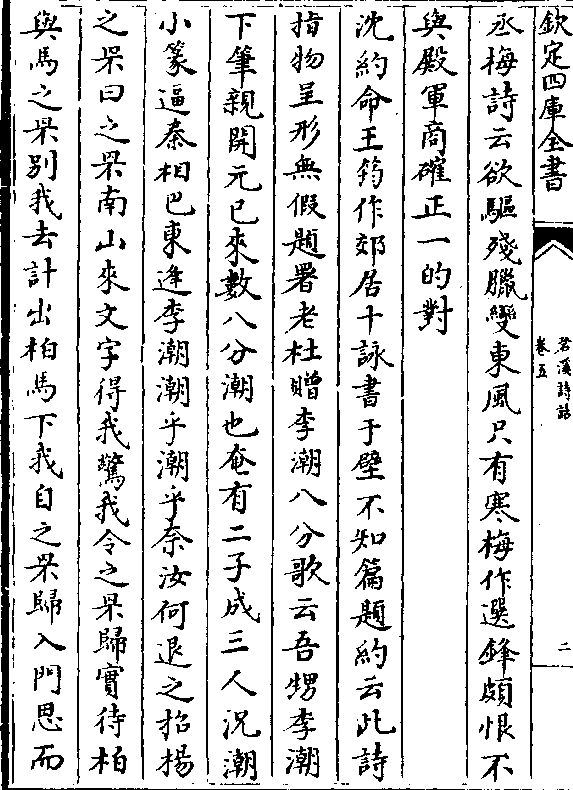 欽定四庫全書
䂬溪詩話
卷五
二
丞梅詩云欲驅殘臘變東風只有寒梅作選鋒頗恨不
與殿軍商確正一的對
沈約命王筠作郊居十詠書于壁不知篇題約云此詩
指物呈形無假題署老杜贈李潮八分歌云吾甥李潮
下筆親開元已來數八分潮也奄有二子成三人況潮
小篆逼秦相巴東逢李潮潮乎潮乎奈汝何退之招楊
之罘曰之罘南山來文字得我驚我令之罘歸實待柏
與馬之罘別我去計出柏馬下我自之罘歸入門思而